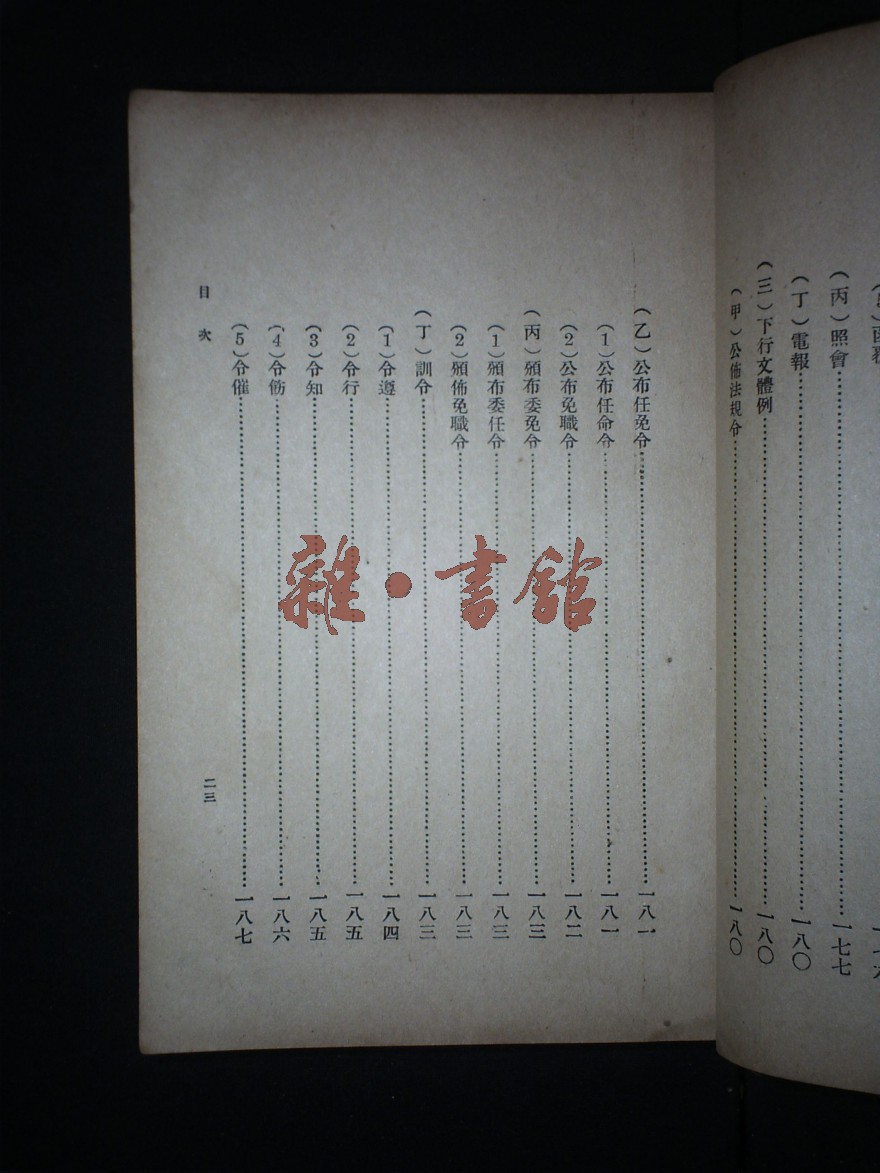 (丙)照會……一七七
(丁)電報……一八〇
(三)下行文體例……一八〇
(甲)公佈法規令……一八〇
(乙)公布任免令……一八一
(1)公布任命令……一八一
(2)公布免職令……一八二
(丙)頒布委免令……一八三
(1)頒布委任令……一八三
(2)頒佈免職令……一八三
(丁)訓令……一八三
(1)令遵……一八四
(2)令行……一八五
(3)令知……一八五
(4)令飭……一八六
(5)令催……一八七
目次
二三
雜·書館